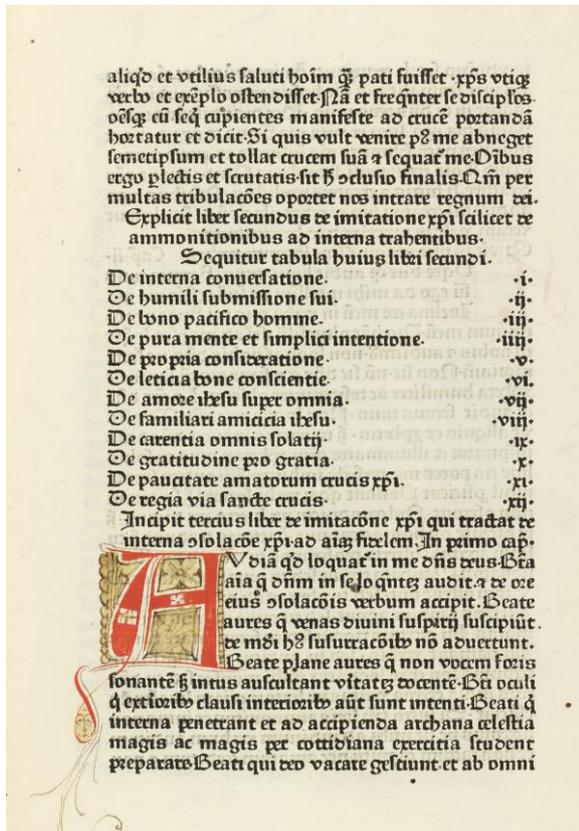 aliqđ et vtilius saluti hoim q̃ʒ pati fuisset ·xp̃s vtiqʒ
verbo et exẽplo ostendisset·Nã et freq̃nter se discip̃los·
oẽsqʒ eũ seq̃ cupientes manifeste ad crucẽ portandã
hortatur et dicit·Si quis vult venire p9 me abneget
semetipsum et tollat crucem suã ⁊ sequat᷑ me·Oĩbus
ergo ꝑlectis et scrutatis·sit h̃ ↄclusio finalis·Qm̃ per
multas tribulacões oportet nos intrare regnum dei·
Explicit liber secundus de imitatione xp̃i scilicet de
ammonitionibus ad interna trahentibus·
Sequitur tabula huius libri secundi.
De interna conuersatione· ·i·
De humili submissione sui· ·ij·
De bono pacifico homine· ·iij·
De pura mente et simplici intentione· ·iiij·
De propria consideratione· ·v·
De leticia bone conscientie· ·vi.
De amore ihesu super omnia· ·vij·
De familiari amicicia ihesu· ·viij·
De carentia omnis solatij· ·ix·
De gratitudine pro gratia· ·x·
De paucitate amatorum crucis xp̃i· ·xi·
De regia via sancte crucis· ·xij·
Incipit tercius liber de imitacõne xp̃i qui tractat de
interna ↄsolacõe xp̃i·ad aĩaʒ fidelem·In primo cap̃·
AVdiã qđ loquat᷑ in me dñs deus·Bt̃a
aĩa q̃ dñm in se loq̃nteʒ audit·⁊ de ore
eius ↄsolacõis verbum accipit. Beate
aures q̃ venas diuini suspirij suscipiũt·
⁊ de mũdi h9 susurracõibʒ nõ aduertunt.
Beate plane aures q̃ non vocem foris
sonantẽ sʒ intus auscultant v̓itateʒ docentẽ·Bt̃i oculi
q̃ extioribʒ clausi interioribʒ aũt sunt intenti·Beati q̃
interna penetrant et ad accipienda archana celestia
magis ac magis per cottidiana exercitia student
preparare·Beati qui deo vacare gestiunt·et ab omni